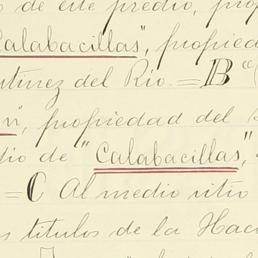 de este predio, prop
Calabacillas", propieda
rtinez del Rio. = B
n", propiedad del
dio de "Calabacillas,"
= C Al medio sitio
s titulos de la Haci